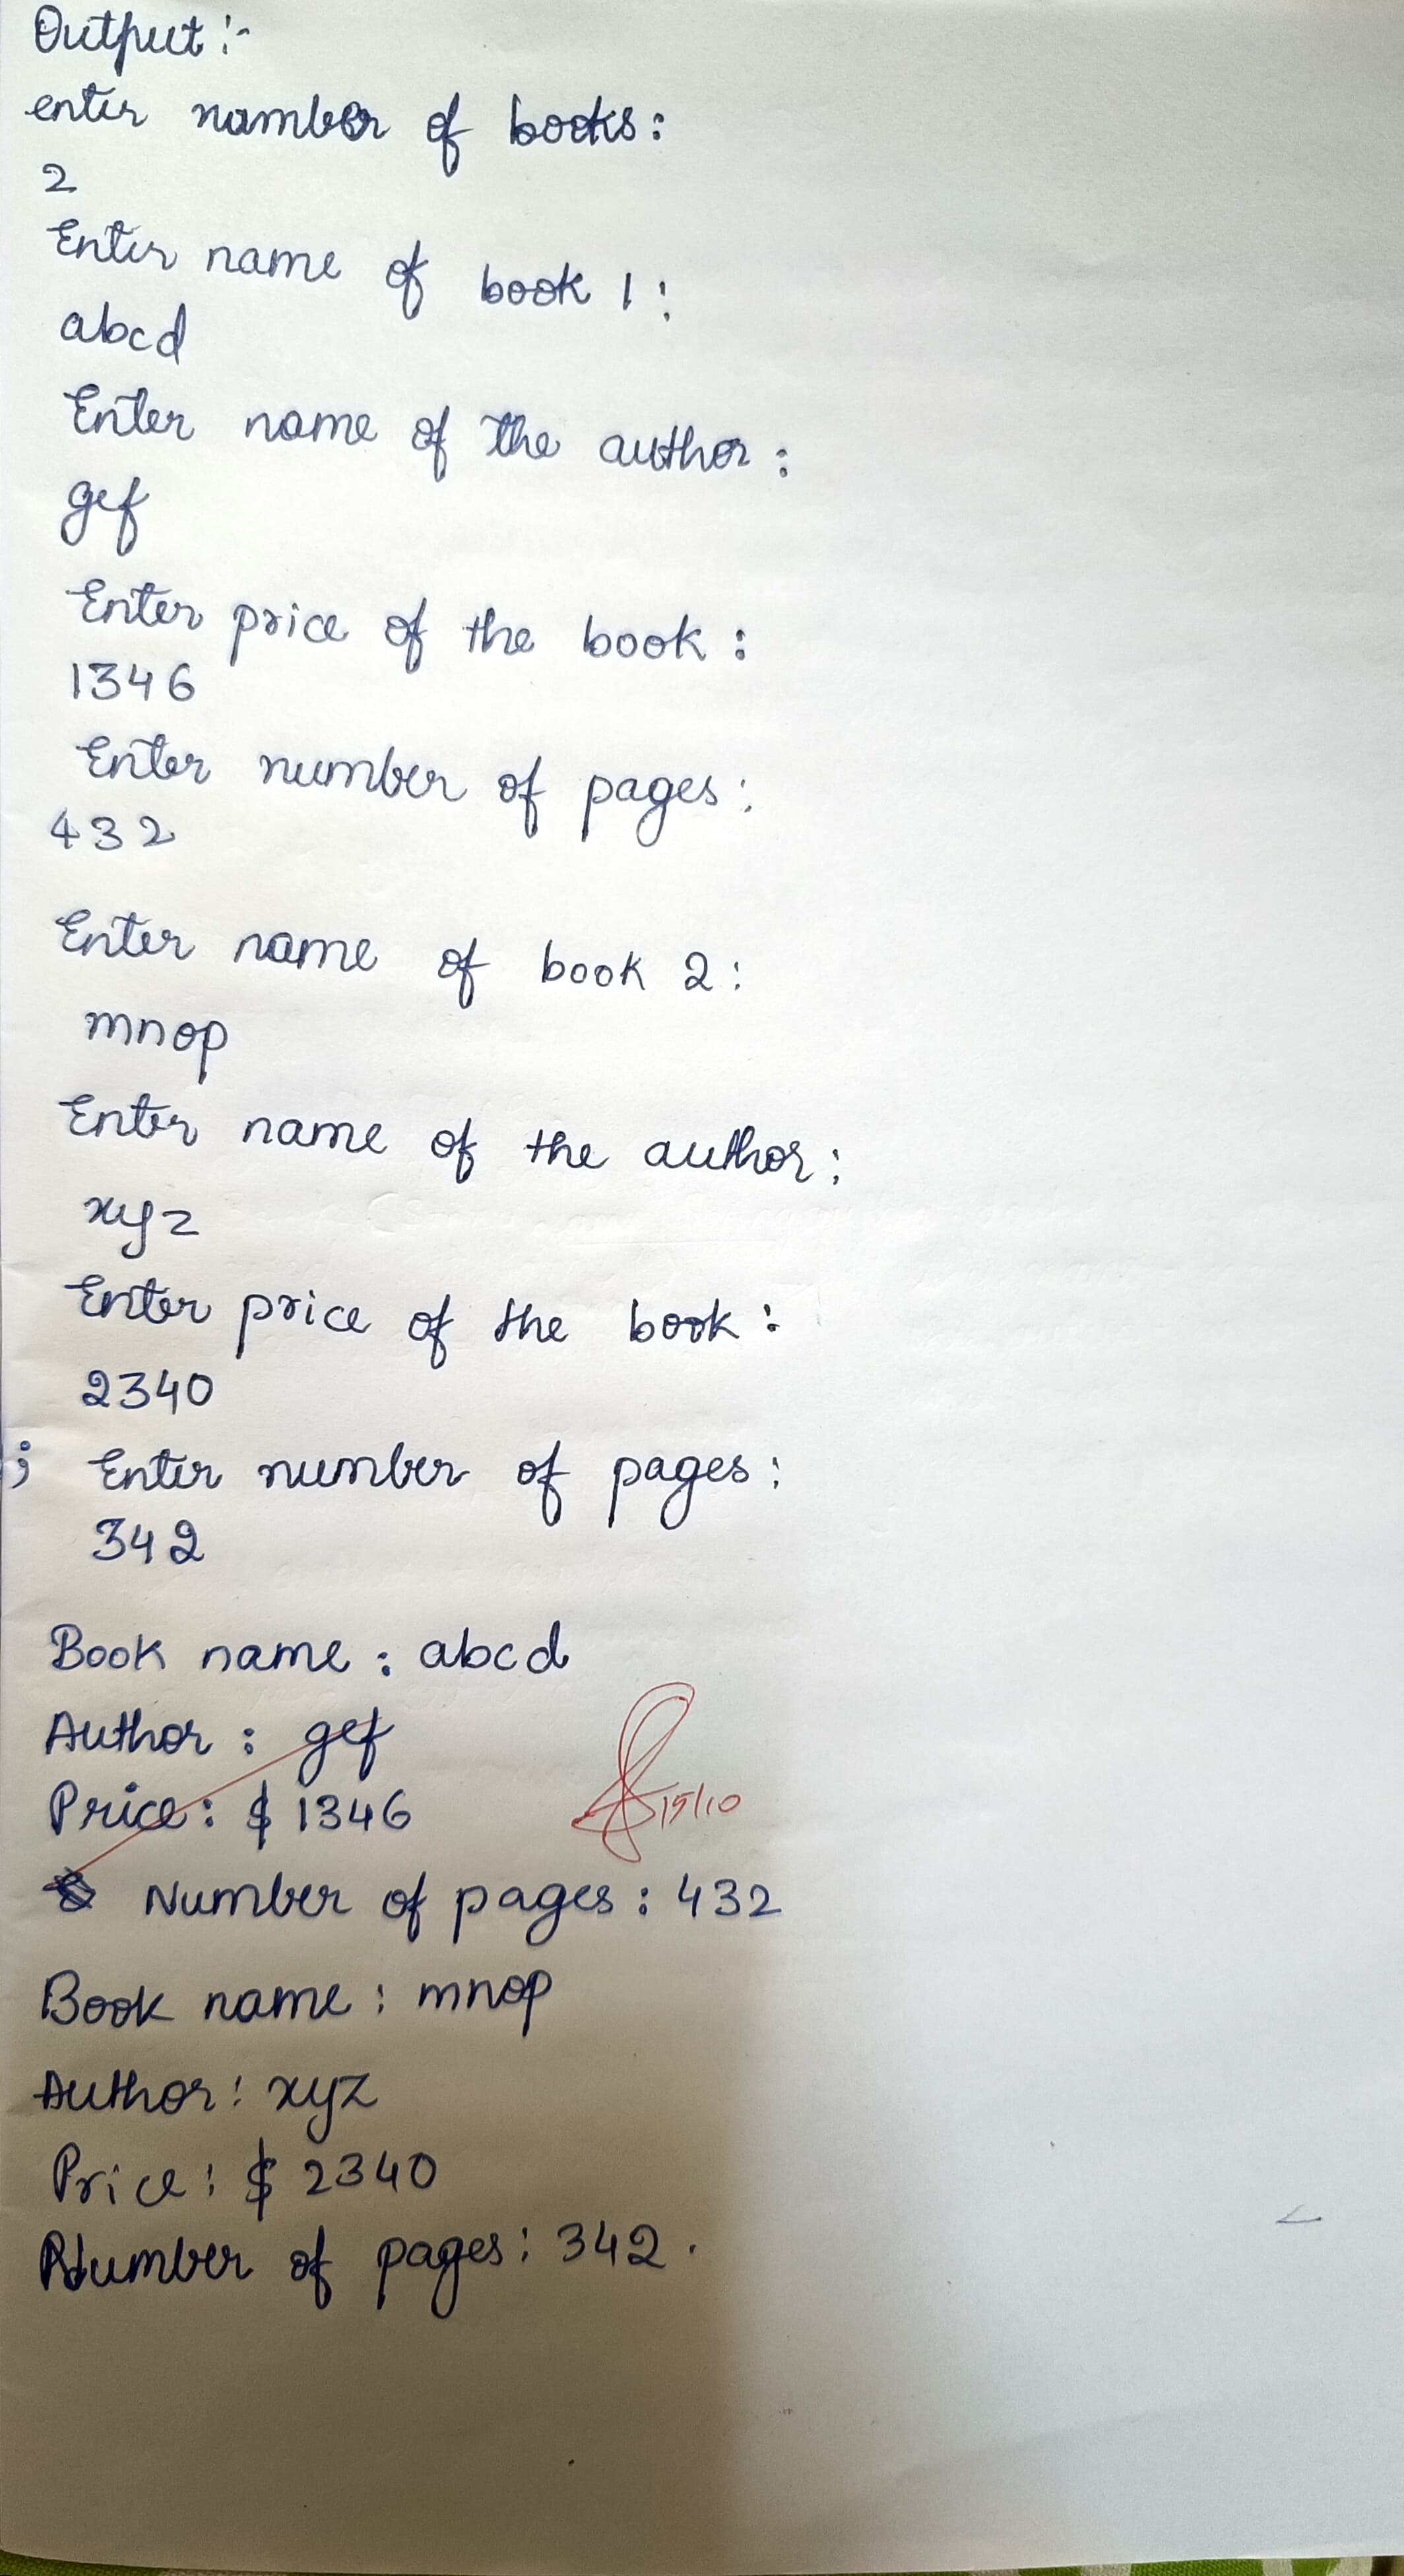 Output :-
enter number of books :
2
Enter name of book 1 :
abcd
Enter name of the author :
gef
Enter price of the book :
1346
Enter number of pages :
432
Enter name of book 2 :
mnop
Enter name of the author :
xyz
Enter price of the book :
2340
; Enter number of pages :
342
Book name : abcd
Author : gef
Price : $ 1346
15/10
Number of pages : 432
Book name : mnop
Author : xyz
Price : $ 2340
Number of pages : 342 .